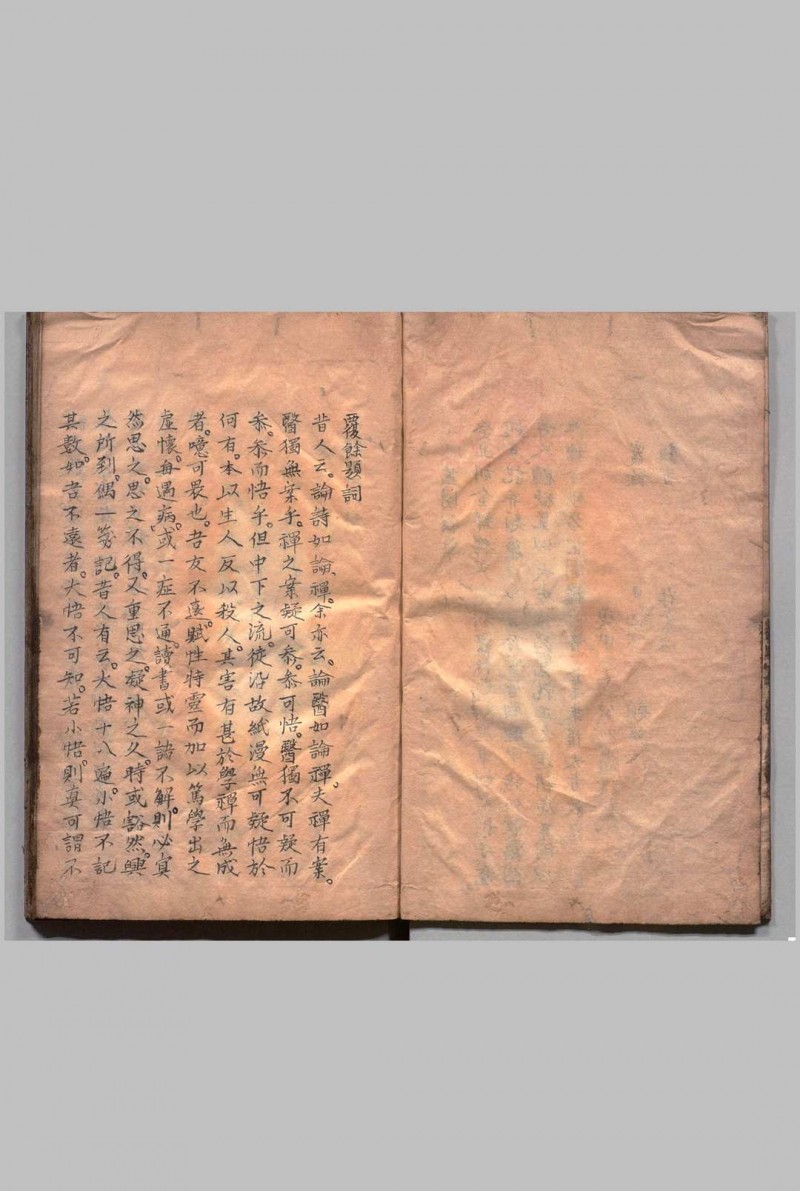 覆餘題詞
昔人云。論詩如論禪。余亦云。論醫如論禪。夫禪有案。
醫獨無案乎。禪之案疑可叅。叅可悟。醫獨不可疑而
叅。叅而悟乎。但中下之流。徒沿故紙漫無可疑悟於
何有。本以生人反以殺人。其害有甚於學禪而無成
者。噫可畏也。吾友不遠賦性特靈而加以篤學出之
虛懷。每遇病。或一症不通。讀書或一語不解。則必冥
然思之。思之不得。又重思之。凝神之久。時或豁然。興
之所到。偶一箋記。昔人有云。大悟十八遍。小悟不記
其數。如吾不遠者。大悟不可知。若小悟。則真可謂不